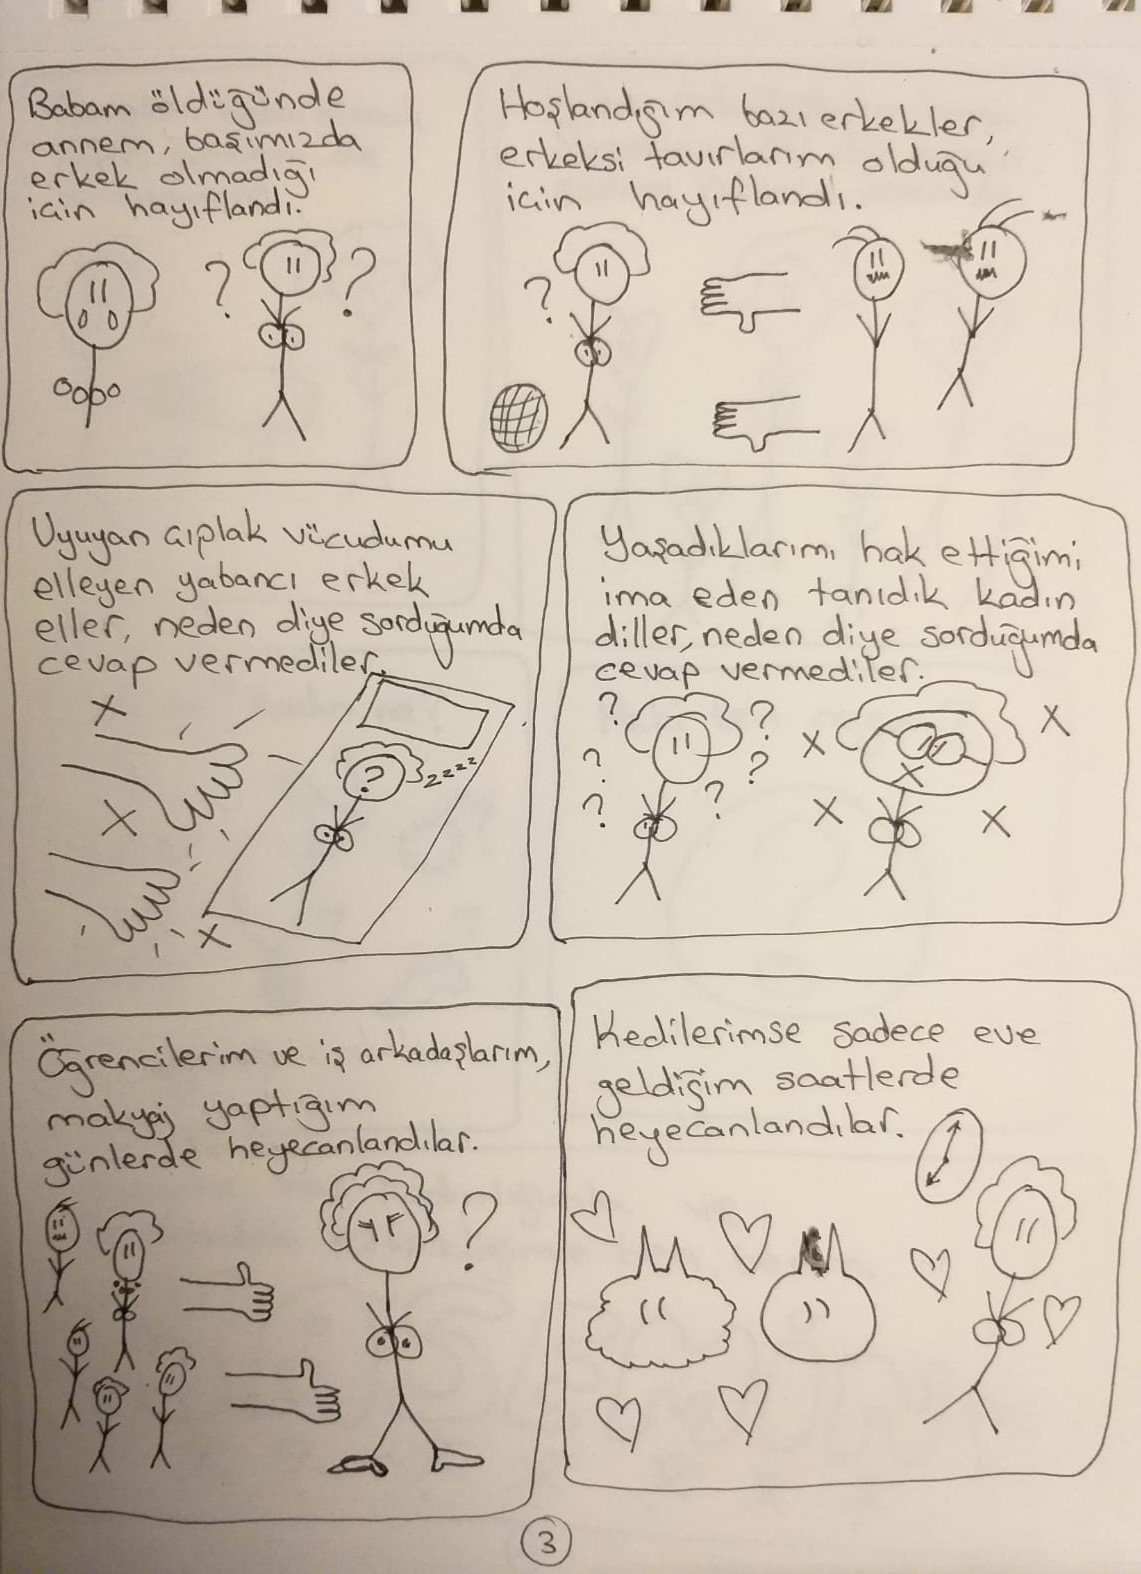 Babam öldüğünde
annem, başımızda
erkek olmadığı
için hayıflandı.
? ?
Hoşlandığım bazı erkekler,
erkeksi tavırlarım olduğu
için hayıflandı.
?
Uyuyan çıplak vücudumu
elleyen yabancı erkek
eller, neden diye sorduğumda
cevap vermediler.
X
?
zzzz
X
X
Yaşadıklarımı hak ettiğimi
ima eden tanıdık kadın
diller, neden diye sorduğumda
cevap vermediler.
? ? X
? ? X X
? ? X X
Öğrencilerim ve iş arkadaşlarım,
makyaj yaptığım
günlerde heyecanlandılar.
?
Kedilerimse sadece eve
geldiğim saatlerde
heyecanlandılar.
3